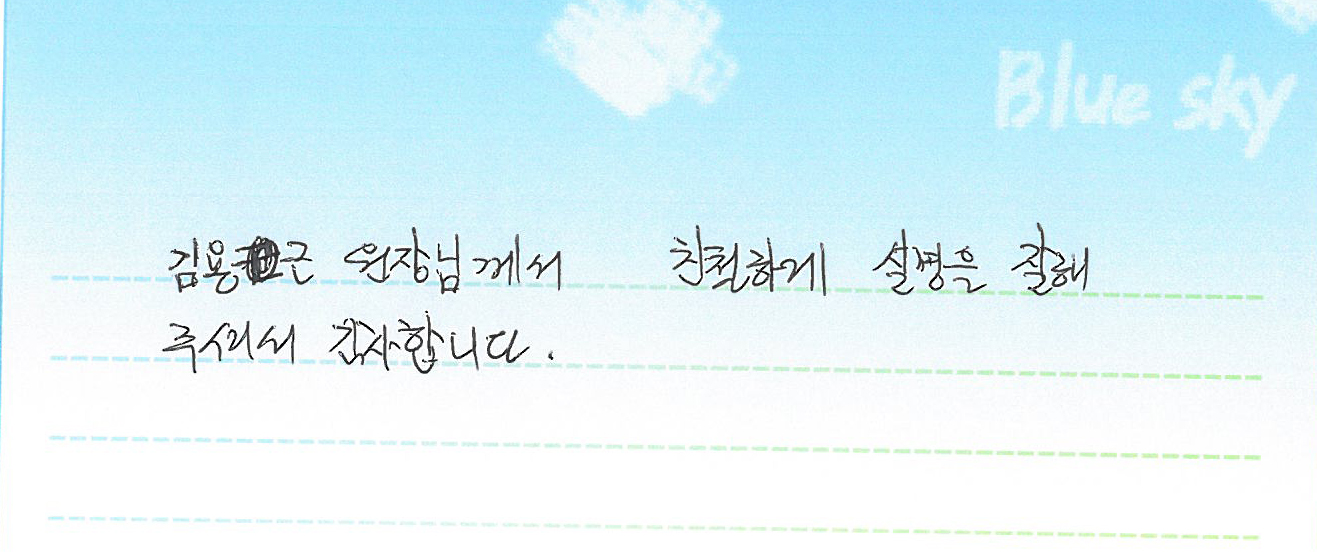 Blue sky
김용근 원장님께서 친절하게 설명을 잘해
주셔서 감사합니다.